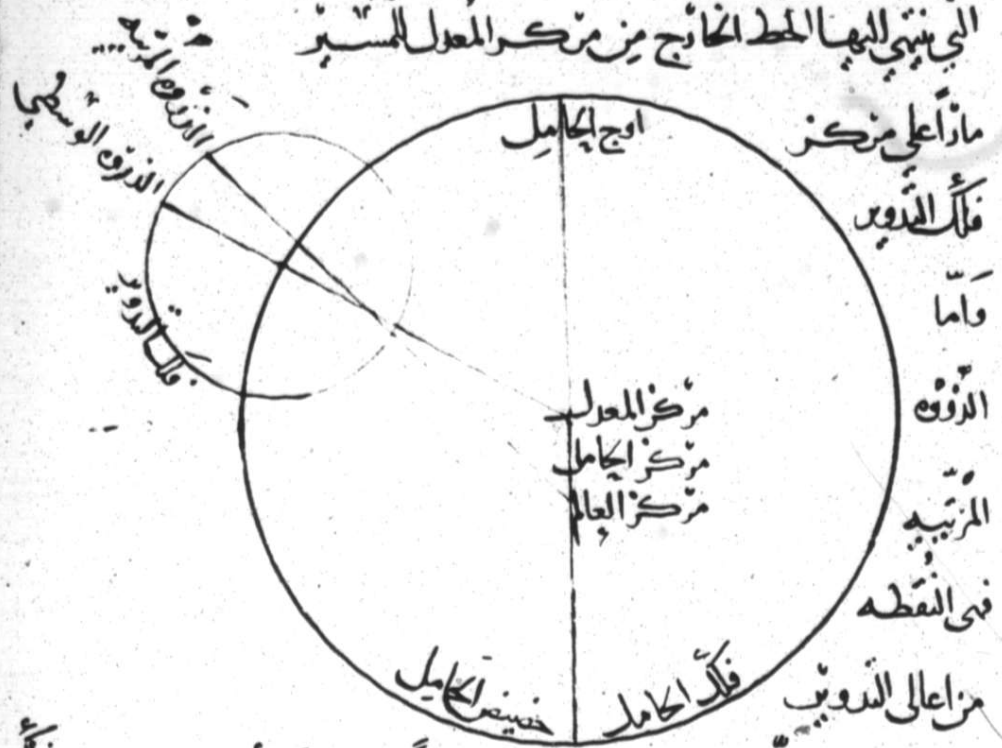 التي ينتهي اليها الخط الخارج من مركز المعدل للمسير
مارّاً على مركز
فلك التدوير
وَامّا
الذروه
المرئيه
فهى النقطه
من اعالى التدوير
الذروه المرئيه
الذروه الوسطى
فلك التدوير
اوج الحامل
مركز المعدل
مركز الحامل
مركز العالم
حضيض الحامل
فلك الحامل